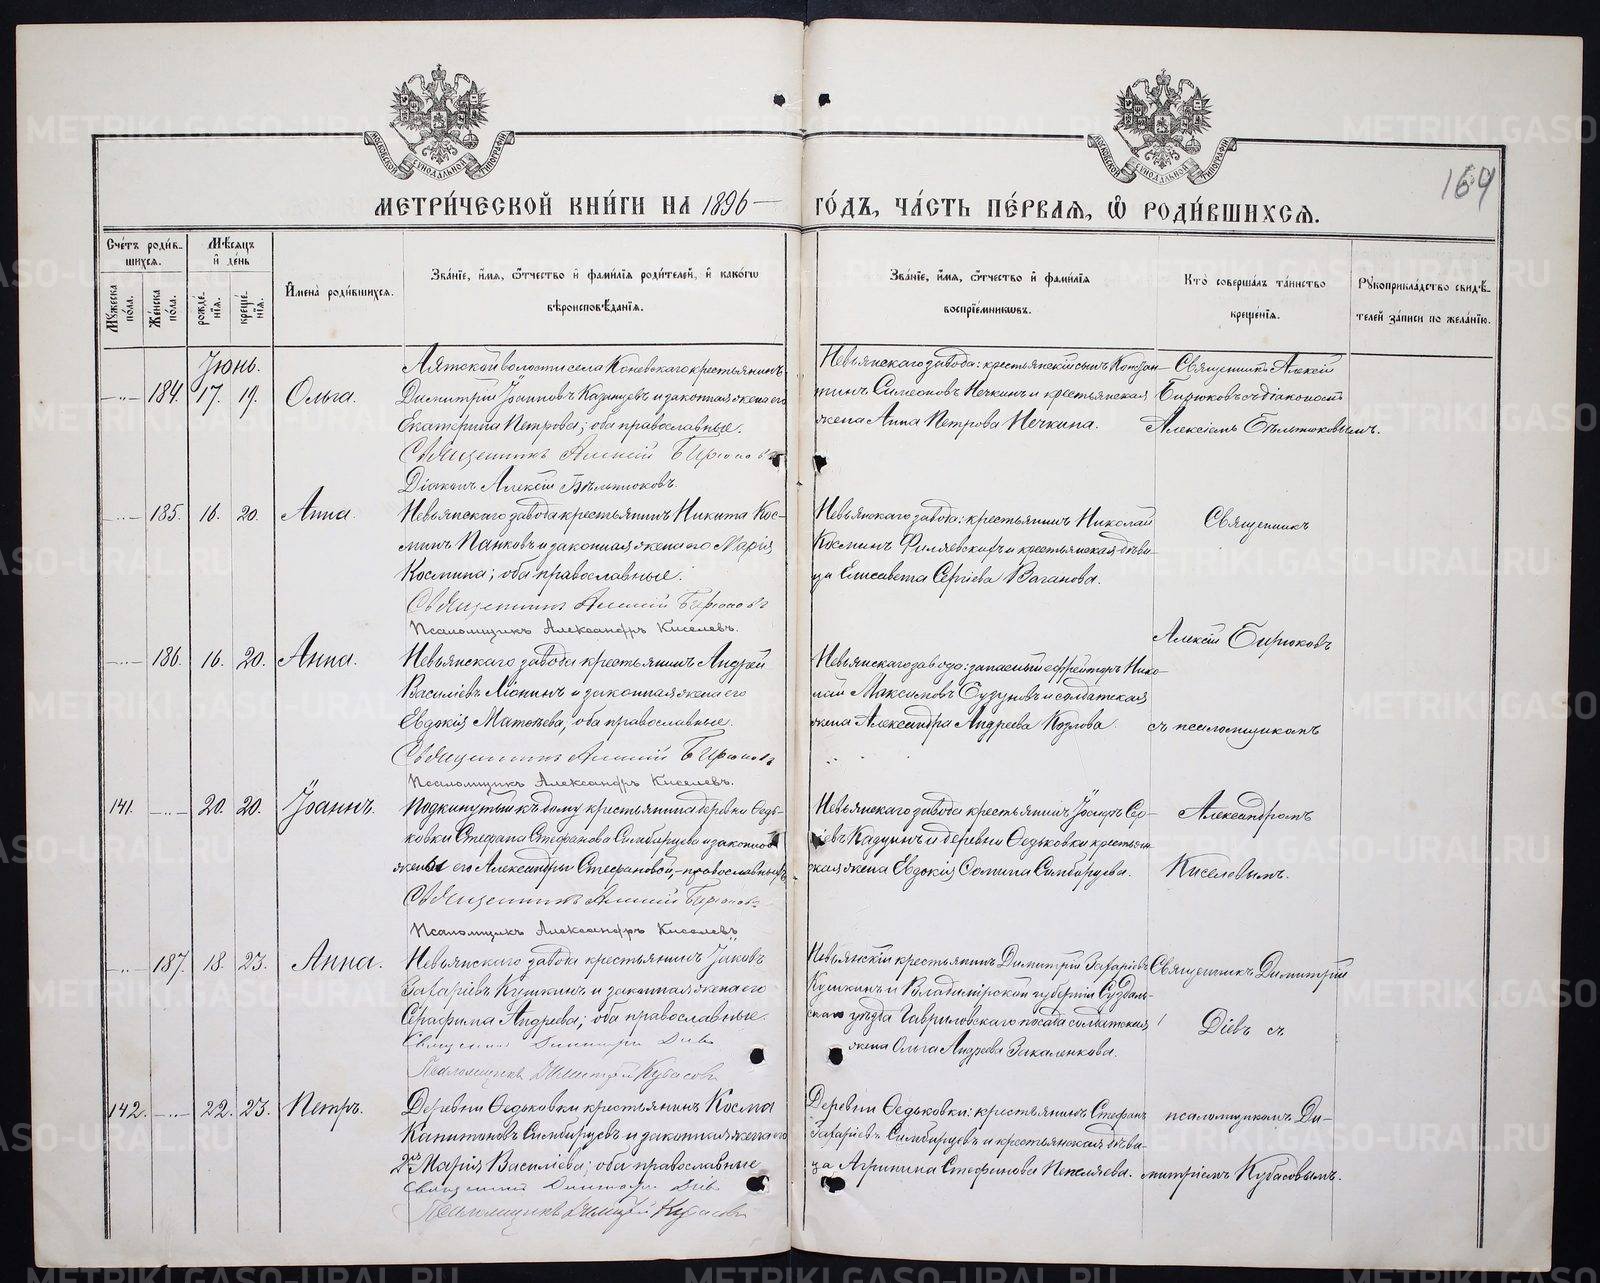 МЕТРИ́ЧЕСКОЙ КНИ́ГИ НА 1896 ГО́ДЪ, ЧА́СТЬ ПЕ́РВАѦ, Ѡ҆ РОДИ́ВШИХСѦ.
164
Сче́тъ роди́в-
шихсѧ.
Му́жеска по́ла.
Же́нска по́ла.
Мѣ́сѧцъ и҆ де́нь
рожде́нїѧ.
креще́нїѧ.
И҆мена̀ роди́вшихсѧ.
Зва́нїе, и҆́мѧ, ѻ҆́тчество и҆ фами́лїѧ роди́телей, и҆ како́гѡ
вѣроисповѣ́данїѧ.
Зва́нїе, и҆́мѧ, ѻ҆́тчество и҆ фами́лїѧ
воспрїе́мникѡвъ.
Кто̀ соверша́лъ та́инство
креще́нїѧ.
Рꙋкоприкла́дство свидѣ́-
телей за́писи по жела́нїю.
Іюнь.
184. 17. 19. Ольга.
Аятской волости села Коневскаго крестьянинъ
Димитрій Іоанновъ Казанцевъ и законная жена его
Екатерина Петрова; оба православные.
Священникъ Алексій Бирюковъ
Діаконъ Алексій Бѣльтюковъ
Невьянскаго завода: крестьянскій сынъ Констан-
тинъ Симеоновъ Нечкинъ и крестьянская
жена Анна Петрова Нечкина.
Священникъ Алексій
Бирюковъ съ діакономъ
Алексіемъ Бѣльтюковымъ.
185. 16. 20. Анна.
Невьянскаго завода крестьянинъ Никита Кос-
минъ Панковъ и законная жена его Марія
Космина; оба православные.
Священникъ Алексій Бирюковъ
Псаломщикъ Александръ Киселевъ.
Невьянскаго завода: крестьянинъ Николай
Косминъ Филяевскихъ и крестьянская дѣви-
ца Елисавета Сергіева Ваганова.
Священникъ
186. 16. 20. Анна.
Невьянскаго завода крестьянинъ Андрей
Василіевъ Ліонинъ и законная жена его
Евдокія Матѳеева, оба православные.
Священникъ Алексій Бирюковъ
Псаломщикъ Александръ Киселевъ.
Невьянскаго завода: запасный ефрейторъ Нико-
лай Максимовъ Сузуновъ и солдатская
жена Александра Андреева Козлова.
Алексій Бирюковъ
съ псаломщикомъ
141. 20. 20. Іоаннъ.
Подкинутый къ дому крестьянина деревни Ѳедь-
ковки Стефана Стефанова Симбирцева и законной
жены его Александры Стефановой, православныхъ
Священникъ Алексій Бирюковъ
Псаломщикъ Александръ Киселевъ
Невьянскаго завода крестьянинъ Іосифъ Сер-
гіевъ Кадцинъ и деревни Ѳедьковки крестьян-
ская жена Евдокія Ѳомина Симбирцева.
Александромъ
Киселевымъ.
187. 18. 23. Анна.
Невьянскаго завода крестьянинъ Іаковъ
Захаріевъ Кушкинъ и законная жена его
Серафима Андреева; оба православные.
Священникъ Димитрій Діевъ
Псаломщикъ Димитрій Кубасовъ
Невьянскій крестьянинъ Димитрій Захаріевъ
Кушкинъ и Владимірской губерніи Суздаль-
скаго уѣзда Гавриловскаго посада солдатская
жена Ольга Андреева Закаленкова.
Священникъ Димитрій
Діевъ съ
142. 22. 23. Петръ.
Деревни Ѳедьковки крестьянинъ Косма
Капитоновъ Симбирцевъ и законная жена его
Марія Василіева; оба православные
Священникъ Димитрій Діевъ
Псаломщикъ Димитрій Кубасовъ
Деревни Ѳедьковки: крестьянинъ Стефанъ
Захаріевъ Симбирцевъ и крестьянская дѣви-
ца Агрипина Стефанова Пепеляева.
псаломщикомъ Ди-
митріемъ Кубасовымъ.
METRIKI.GASO-URAL.RU